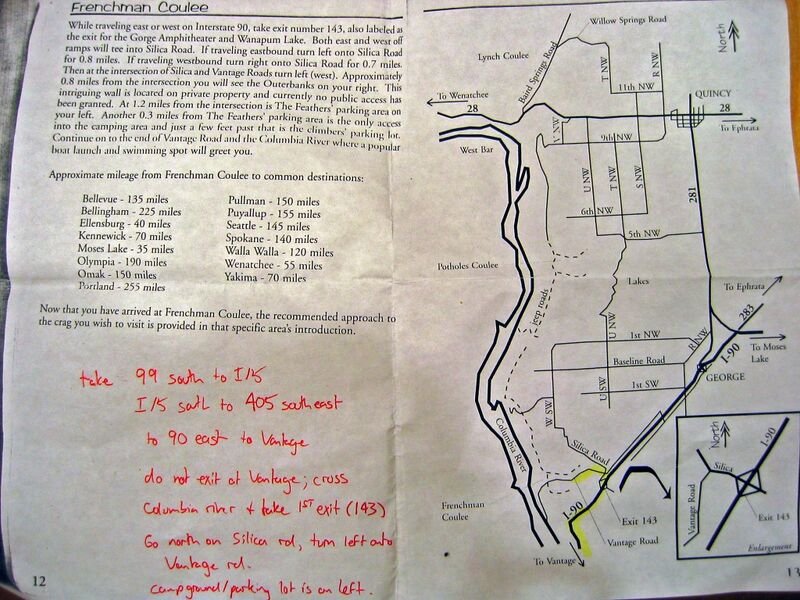 Frenchman Coulee
While traveling east or west on Interstate 90, take exit number 143, also labeled as
the exit for the Gorge Amphitheater and Wanapum Lake. Both east and west off
ramps will tee into Silica Road. If traveling eastbound turn left onto Silica Road
for 0.8 miles. If traveling westbound turn right onto Silica Road for 0.7 miles.
Then at the intersection of Silica and Vantage Roads turn left (west). Approximately
0.8 miles from the intersection you will see the Outerbanks on your right. This
intriguing wall is located on private property and currently no public access has
been granted. At 1.2 miles from the intersection is The Feathers' parking area on
your left. Another 0.3 miles from The Feathers' parking area is the only access
into the camping area and just a few feet past that is the climbers' parking lot.
Continue on to the end of Vantage Road and the Columbia River where a popular
boat launch and swimming spot will greet you.
Approximate mileage from Frenchman Coulee to common destinations:
Bellevue - 135 miles
Bellingham - 225 miles
Ellensburg - 40 miles
Kennewick - 70 miles
Moses Lake - 35 miles
Olympia - 190 miles
Omak - 150 miles
Portland - 255 miles
Pullman - 150 miles
Puyallup - 155 miles
Seattle - 145 miles
Spokane - 140 miles
Walla Walla - 120 miles
Wenatchee - 55 miles
Yakima - 70 miles
Now that you have arrived at Frenchman Coulee, the recommended approach to
the crag you wish to visit is provided in that specific area's introduction.
take 99 south to I/5
I/5 south to 405 southeast
to 90 east to Vantage
do not exit at Vantage; cross
Columbia river + take 1ST exit (143)
Go north on Silica rd, turn left onto
Vantage rd.
campground/parking lot is on left.
12
Willow Springs Road
North
Lynch Coulee
Baird Springs Road
T NW
R NW
11th NW
To Wenatchee
28
QUINCY
28
To Ephrata
V NW
9th NW
West Bar
U NW
T NW
S NW
281
6th NW
5th NW
Potholes Coulee
Lakes
To Ephrata
jeep roads
283
U NW
1st NW
R NW
I-90
To Moses
Lake
Baseline Road
GEORGE
1st SW
U SW
W SW
Columbia River
Silica Road
North
I-90
Silica
Frenchman
Coulee
I-90
Exit 143
Vantage Road
Vantage Road
Exit 143
To Vantage
Enlargement
13